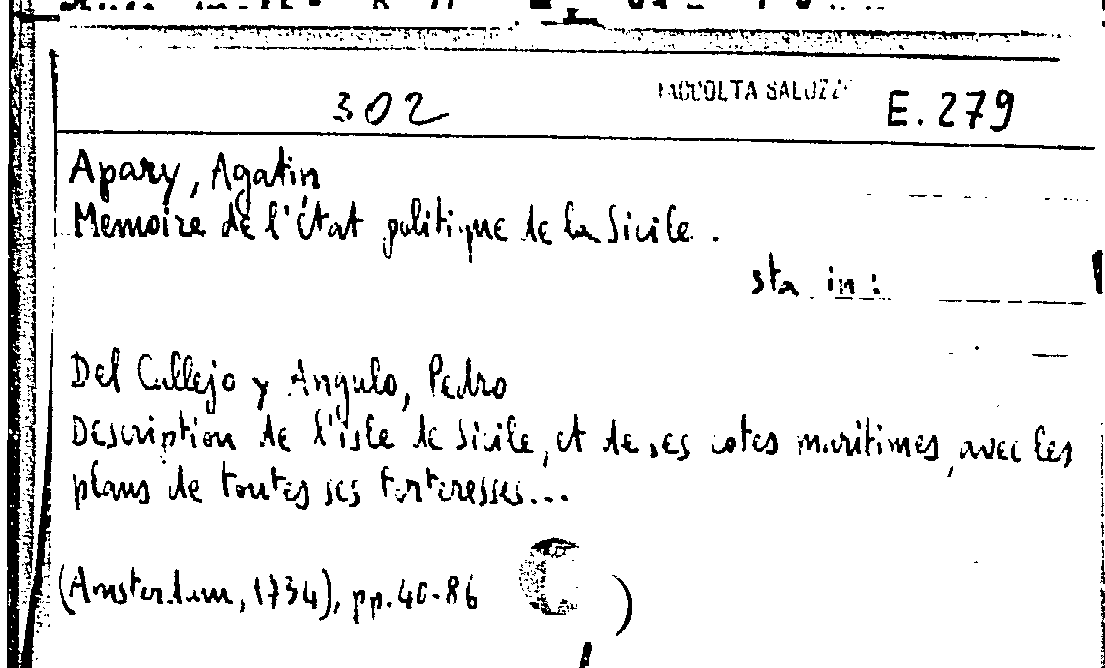 302
RACCOLTA SALUZZO
E.279
Apary, Agatin
Memoire de l'État politique de la Sicile.
sta in:
Del Callejo y Angulo, Pedro
Description de l'isle de Sicile, et de ses cotes maritimes, avec les
plans de toutes ses forteresses...
(Amsterdam, 1734), pp. 40-86 )